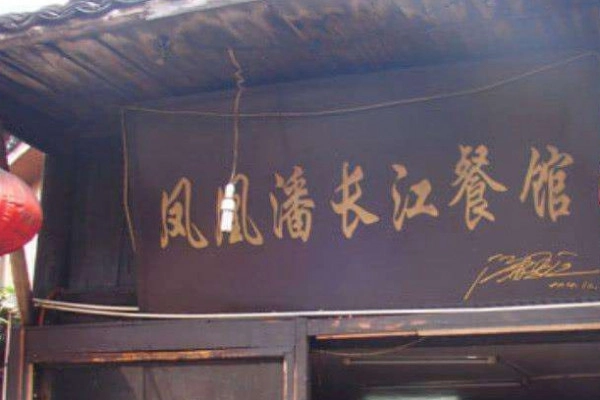 凤凰潘长江餐馆